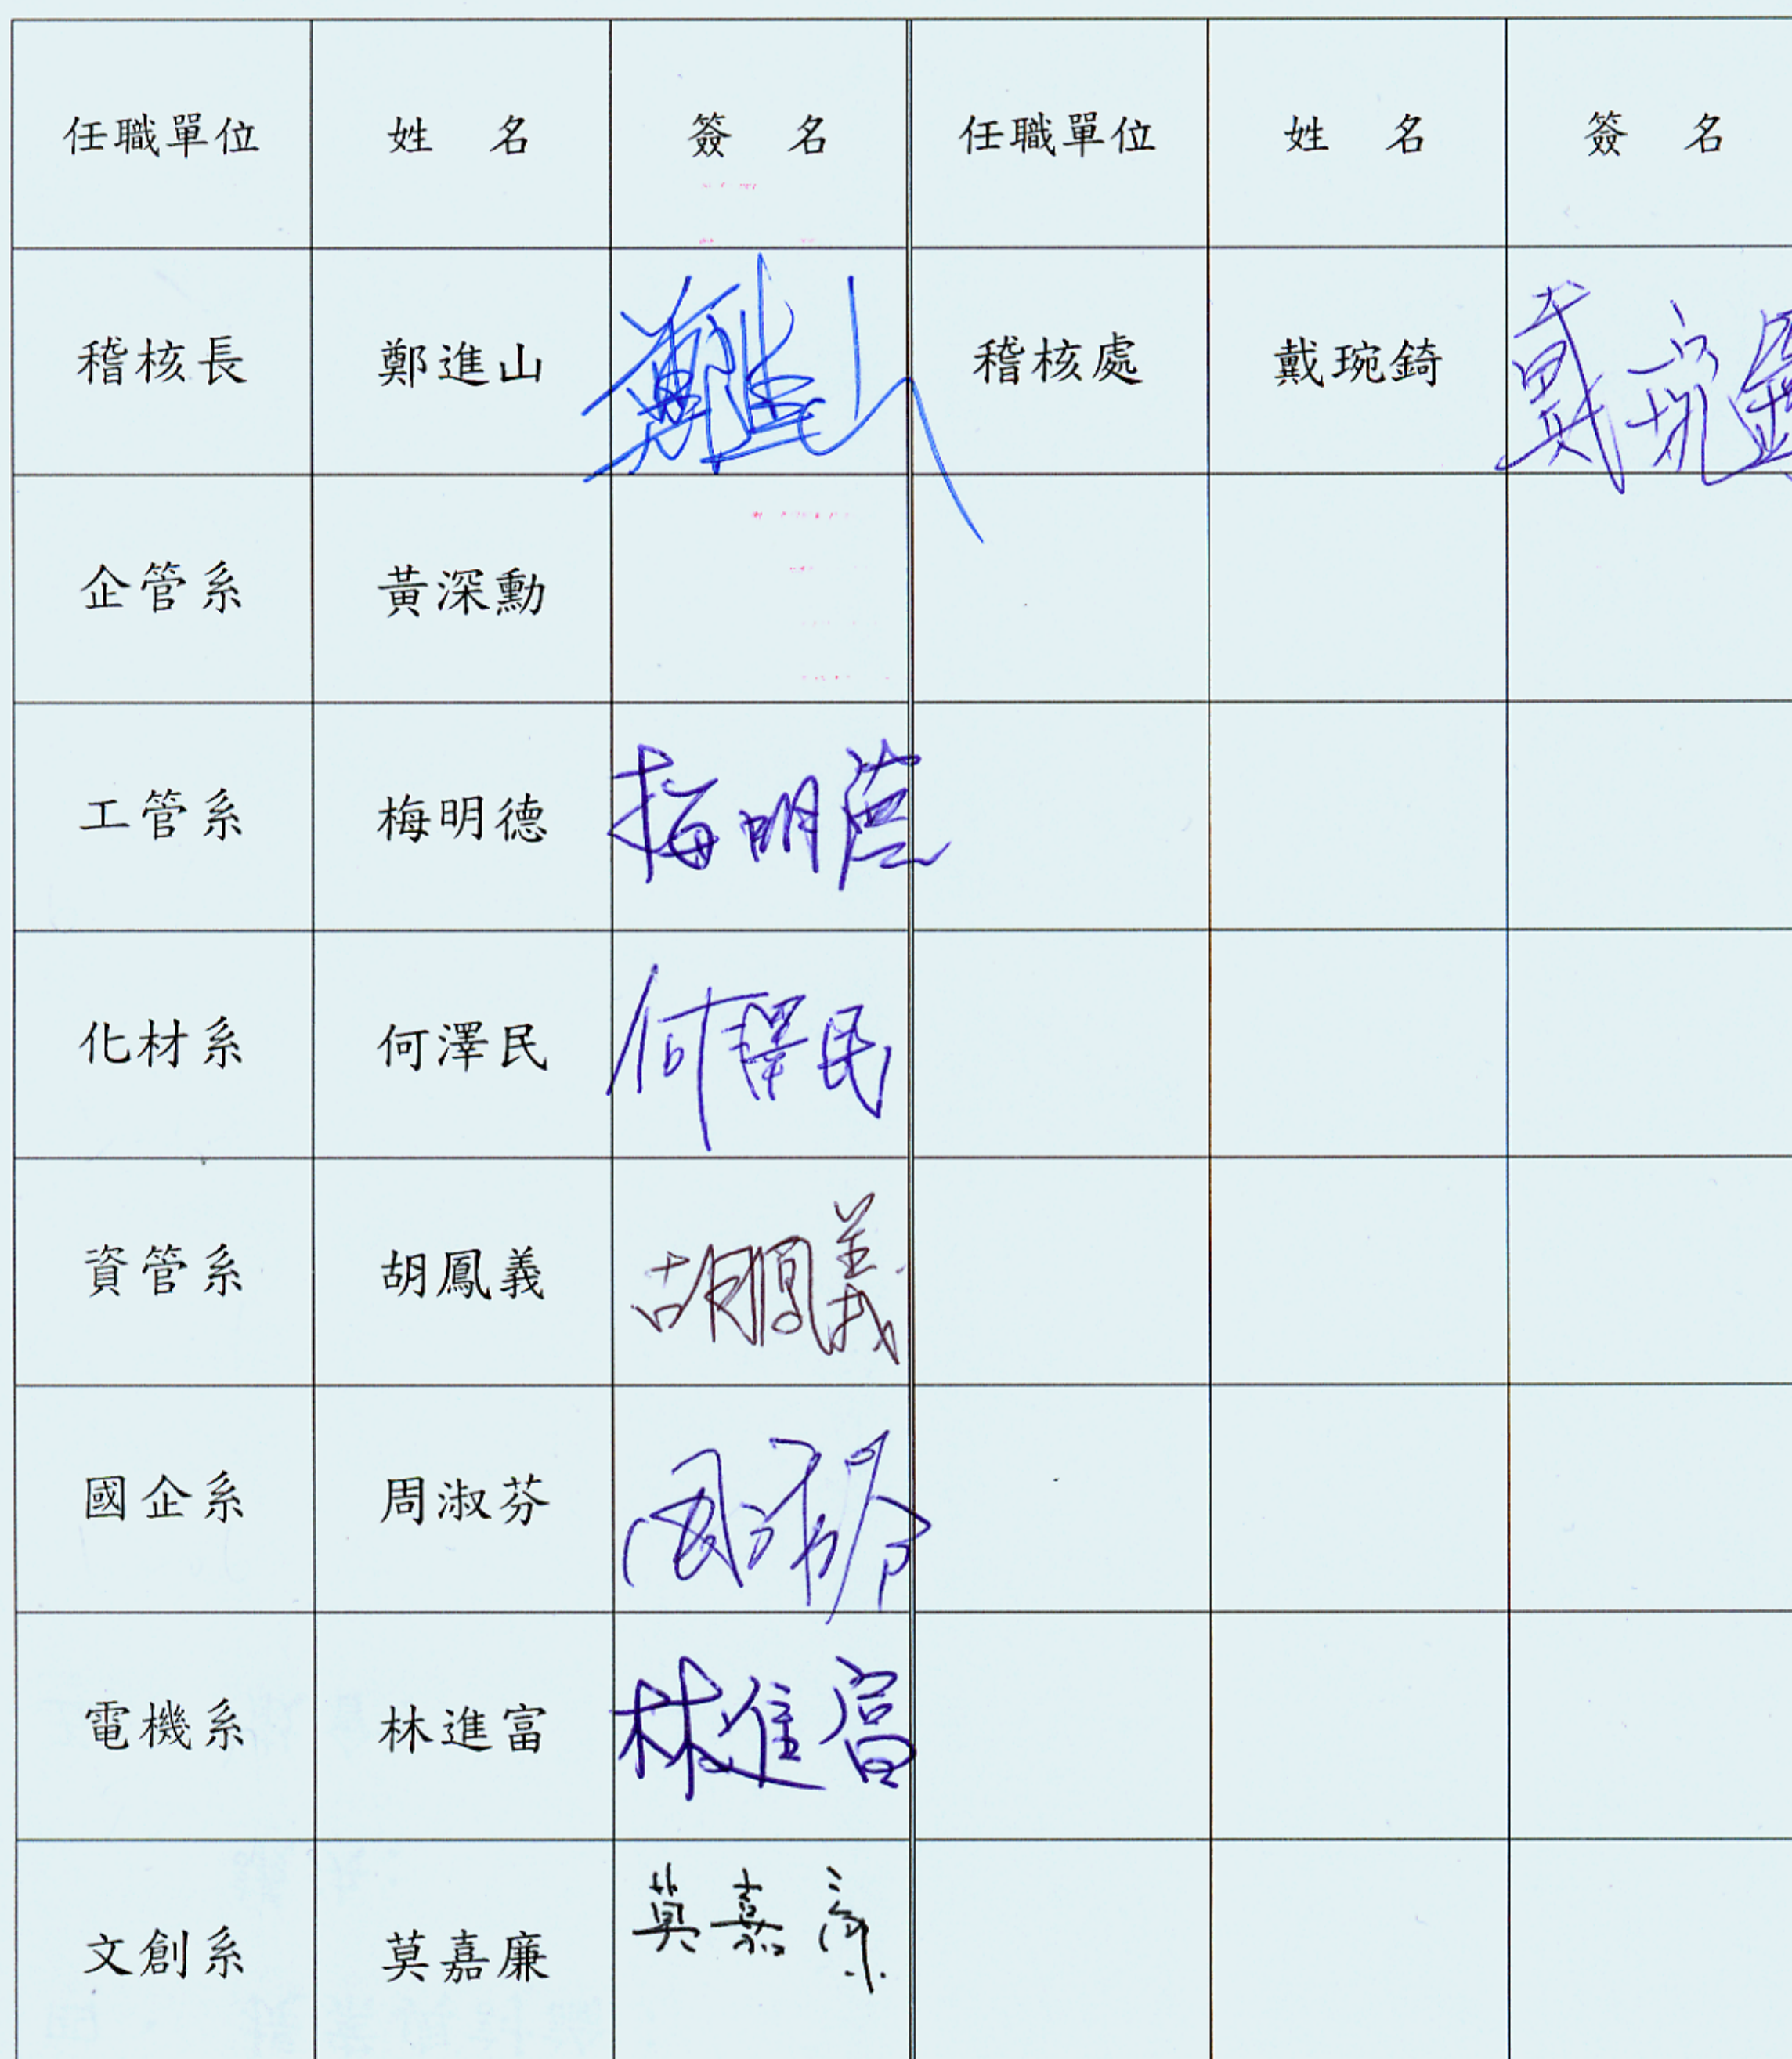 任職單位 姓 名 簽 名 任職單位 姓 名 簽 名
稽核長 鄭進山 鄭進山 稽核處 戴琬錡 戴琬錡
企管系 黃深勳
工管系 梅明德 梅明德
化材系 何澤民 何澤民
資管系 胡鳳義 胡鳳義
國企系 周淑芬 周淑芬
電機系 林進富 林進富
文創系 莫嘉廉 莫嘉廉